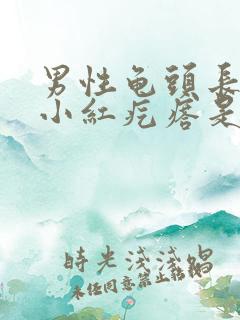 男性龟頭長
小紅疙瘩是
時光淺淺唱
未经同意禁止转载